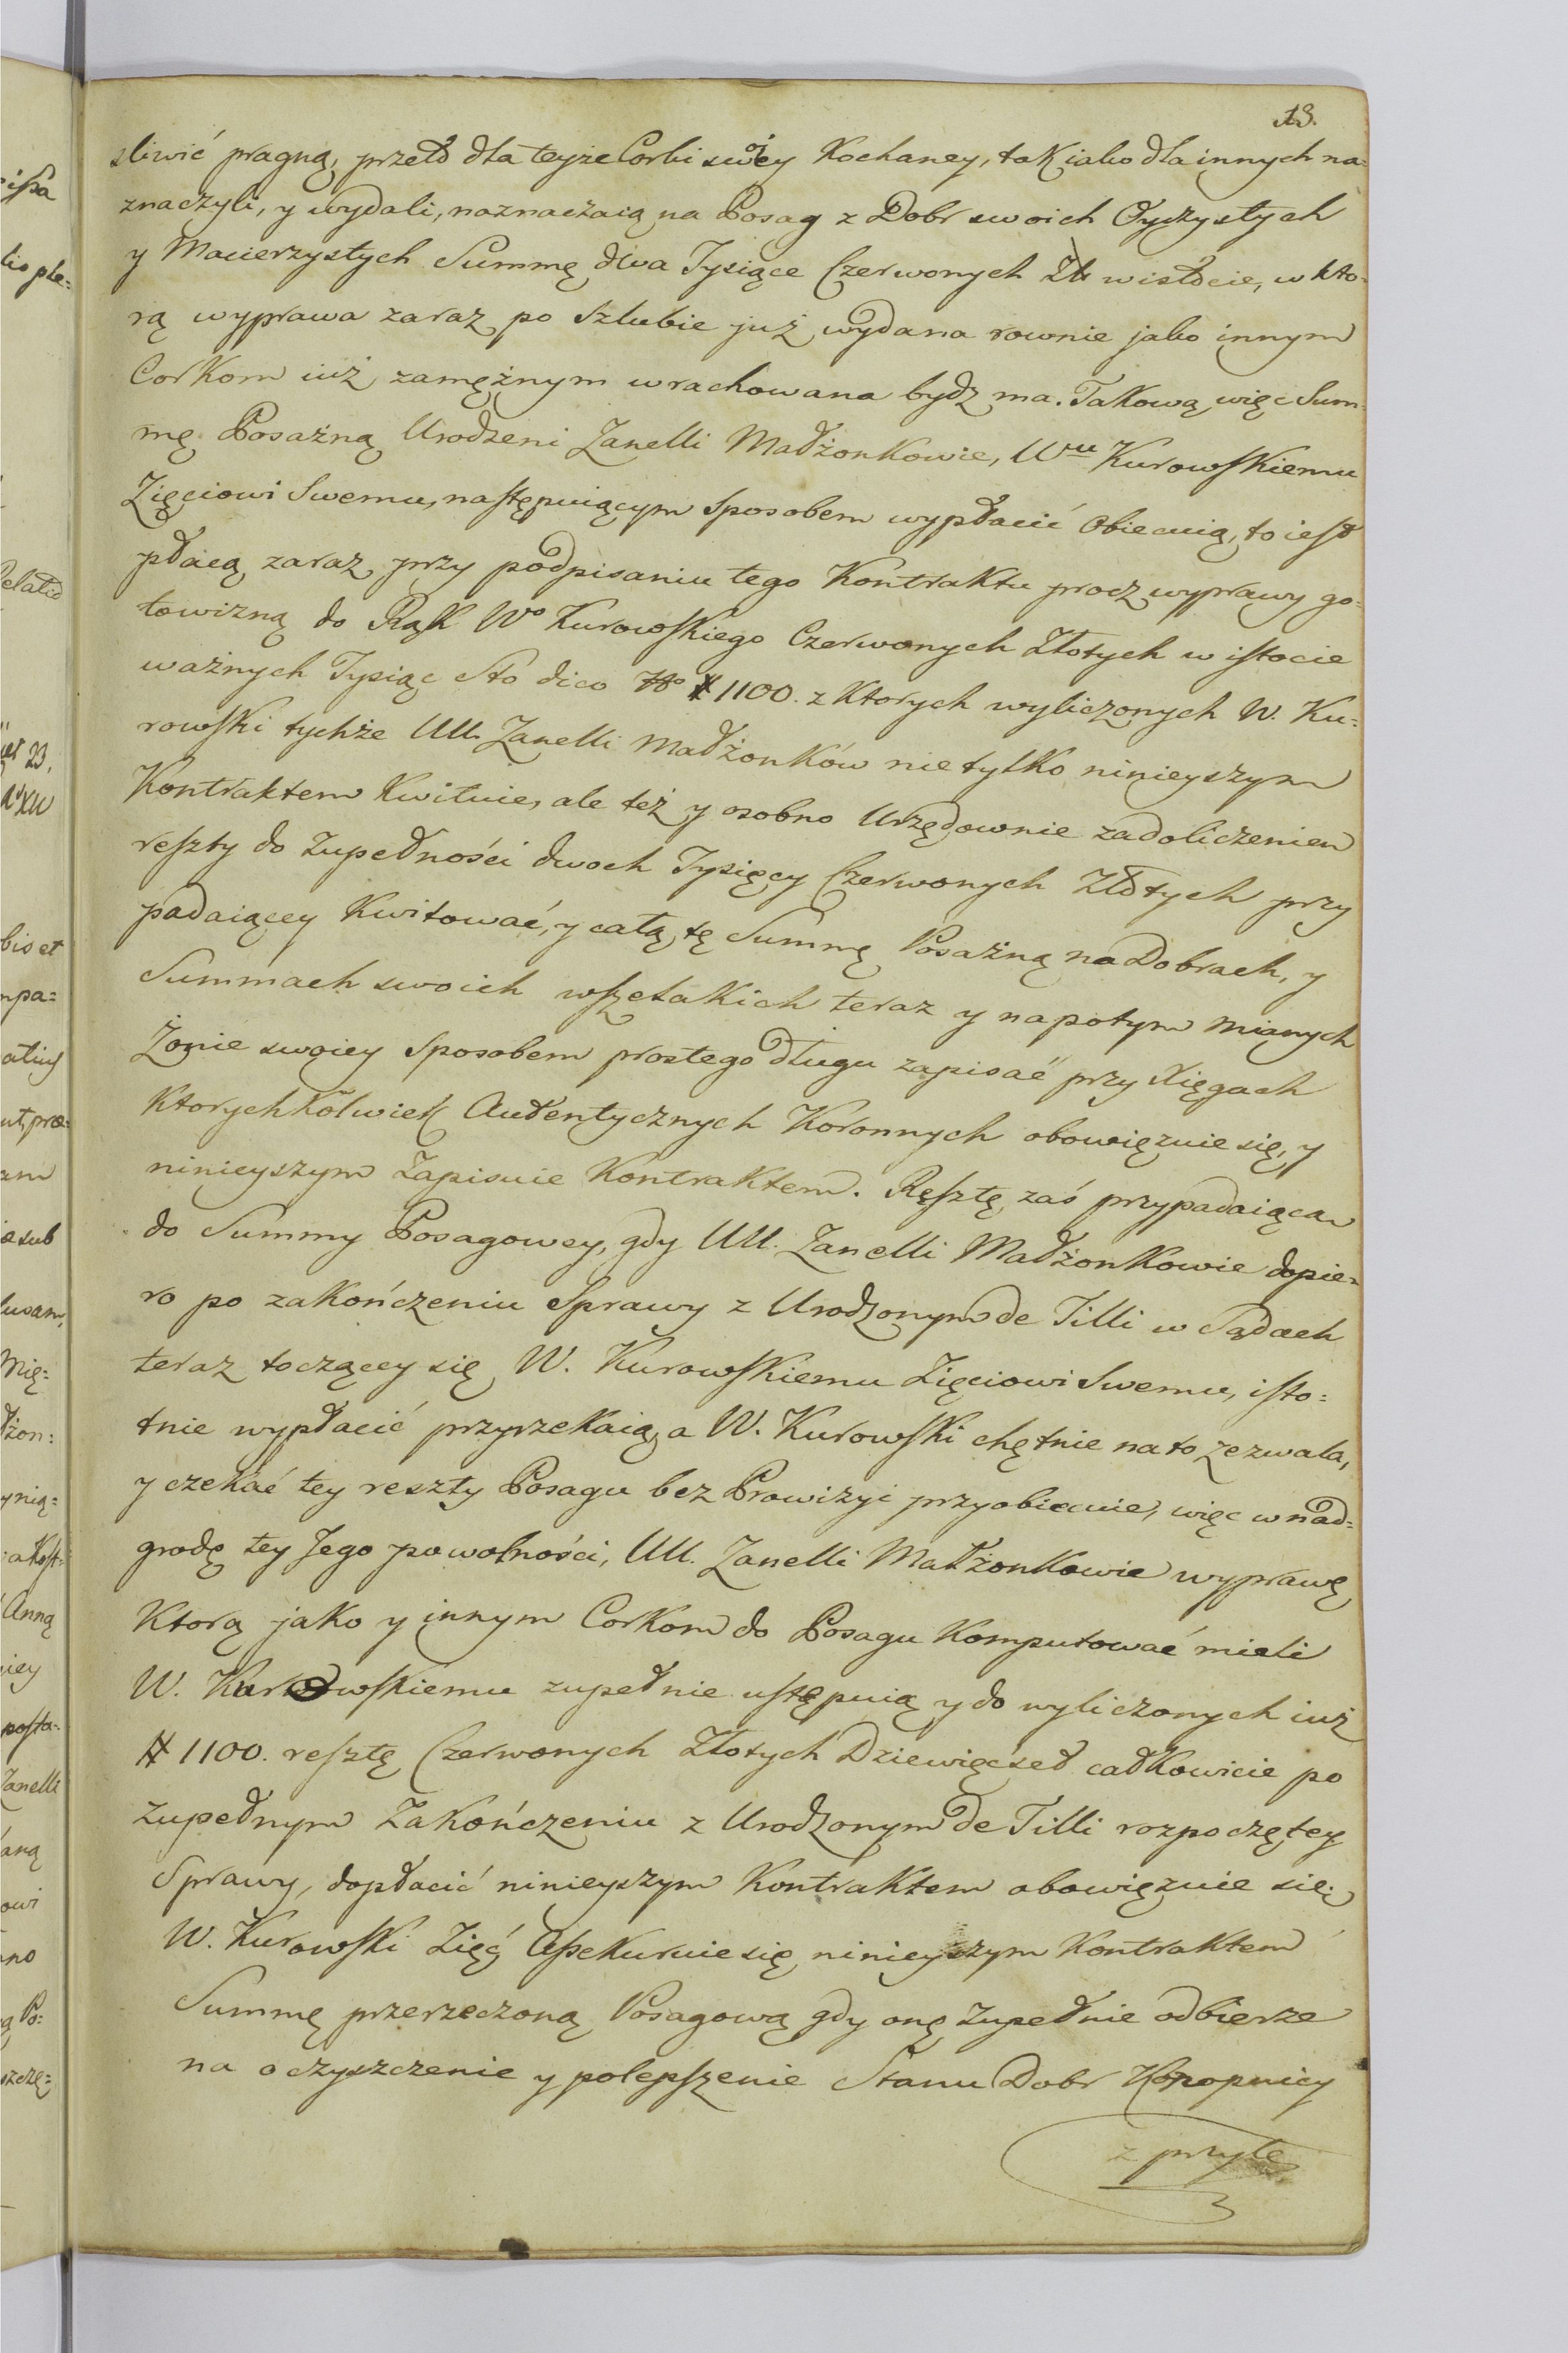 13.
sliwić pragną, przeto dla teyże Corki swoiey Kochaney, tak iako dla innych na-
znaczyli, y wydali, naznaczaią na Posag z Dobr swoich Oyczystych
y Macierzystych Summę dwa Tysiące Czerwonych Zł: w istocie, w kto-
rą wyprawa zaraz po Szlubie już wydana rownie jako innym
Corkom iuż zamężnym wrachowana bydz ma. Takową więc Sum-
mę Posażną Urodzeni Zanelli Małżonkowie, Wmu Kurowskiemu
Zięciowi Swemu, następuiącym Sposobem wypłacić Obiecuią, to iest
płacą zaraz przy podpisaniu tego Kontraktu procz wyprawy go-
towizną do Rąk Wo Kurowskiego Czerwonych Złotych w istocie
ważnych Tysiąc Sto dico # 1100. z Ktorych wyliczonych W. Ku=
rowski tychże UU. Zanelli Małżonków nie tylko ninieyszym
Kontraktem Kwituie, ale też y osobno Urzędownie za doliczeniem
reszty do zupełności dwoch Tysięcy Czerwonych Złotych przy
padaiącey Kwitować, y całą tę Summę Posażną na Dobrach, y
Summach swoich wszelakich teraz y napotym mianych
Żonie swoiey Sposobem prostego długu zapisać przy Xięgach
Ktorychkolwiek Autentycznych Koronnych obowięzuie się, y
ninieyszym Zapisuie Kontraktem. Resztę zaś przypadaiącą
do Summy Posagowey, gdy UU. Zanelli Małżonkowie dopie-
ro po zakończeniu Sprawy z Urodzonym de Tilli w Sądach
teraz toczącey się W. Kurowskiemu Zięciowi Swemu, isto=
tnie wypłacić przyrzekaią, a W. Kurowski chętnie na to zezwala,
y czekać tey reszty Posagu bez Prowizyi przyobiecuie, więc w nad=
grodę tey Jego powolności, UU. Zanelli Małżonkowie wyprawę
Ktorą jako y innym Corkom do Posagu Komputować mieli
W. Kurowskiemu zupełnie ustępuią y do wyliczonych iuż
# 1100. resztę Czerwonych Złotych Dziewięćset całkowicie po
zupełnym Zakończeniu z Urodzonym de Tilli rozpoczętey
Sprawy, dopłacić ninieyszym Kontraktem obowięzuie się;
W. Kurowski Zięć Assekuruie się ninieyszym Kontraktem
Summę przerzeczoną Posagową gdy onę zupełnie odbierze
na oczyszczenie y polepszenie Stanu Dobr Konopnicy
z przyle